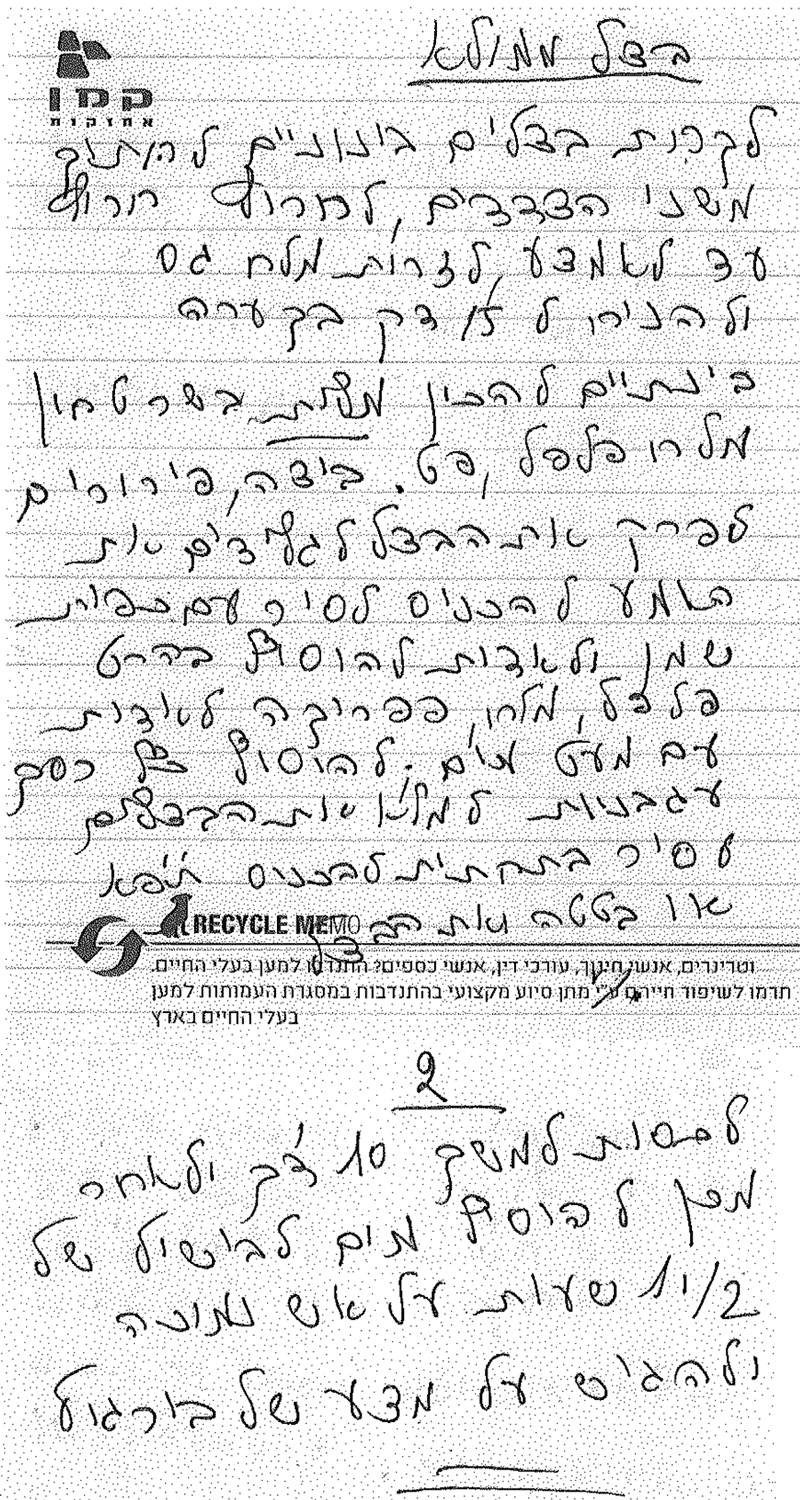 בצל ממולא
קמן
אחזקות
לקחת בצלים בינוניים לחתוך
משני הצדדים, לחרוץ חרוץ
עד לאמצע לזרות מלח גס
ולהניח ל 15 דק בקערה
בינתיים להכין בשר טחון
מלח פלפל, פט. ביצה, פירורים
לפרק את הבצל לגלדים את
האמצע להכניס לסיר עם כפות
שמן ולאדות להוסיף בהרט
פלפל, מלח, פפריקה לאדות
עם מעט מים. להוסיף רסק
עגבניות למלא את הבצלים
בסיר בתחתית להכניס ת"א
או בטטה ואת הבצל
RECYCLE MEMO
וטרינרים, אנשי חינוך, עורכי דין, אנשי כספים? התנדבו למען בעלי החיים.
תרמו לשיפור חייהם ע"י מתן סיוע מקצועי בהתנדבות במסגרת העמותות למען
בעלי החיים בארץ
2
לכסות למשך 10 דק ולאחר
מכן להוסיף מים לבישול של
1 1/2 שעות על אש נמוכה
ולהגיש על מצע של בורגול